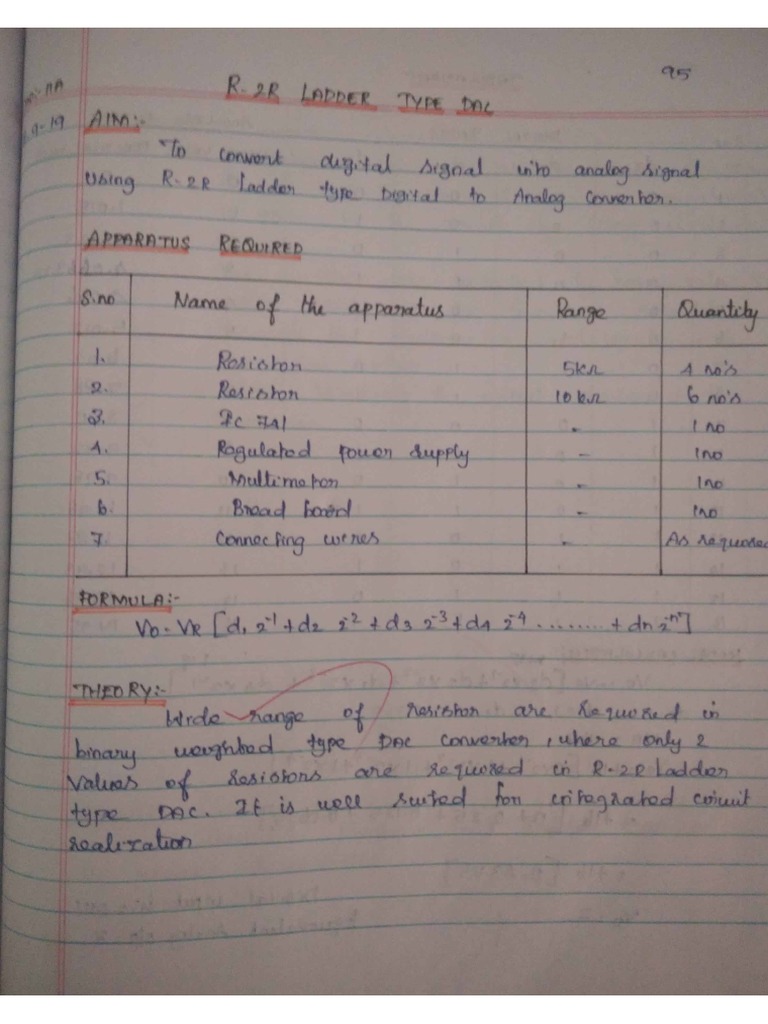 95
R-2R LADDER TYPE DAC
AIM:-
To convert digital signal into analog signal
Using R-2R Ladder type Digital to Analog Convertor.
APPARATUS REQUIRED
S.no Name of the apparatus Range Quantity
1. Resistor 5kΩ 4 no's
2. Resistor 10kΩ 6 no's
3. Ic 741 - 1 no
4. Regulated power supply - 1no
5. Multimeter - 1no
6. Bread board - 1no
7. Connecting wires - As required
FORMULA:-
Vo = VR [d1 2^-1 + d2 2^-2 + d3 2^-3 + d4 2^-4 ......... + dn 2^-n]
THEORY:-
Wide range of resistor are required in
binary weighted type DAC converter, where only 2
values of resistors are required in R-2R Ladder
type DAC. It is well suited for integrated circuit
realization